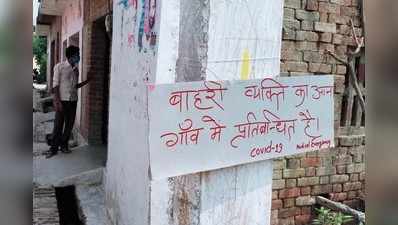 बाहरी व्यक्ति का आना
गाँव मे प्रतिबन्धित है।
COVID-19 Medical Emergency